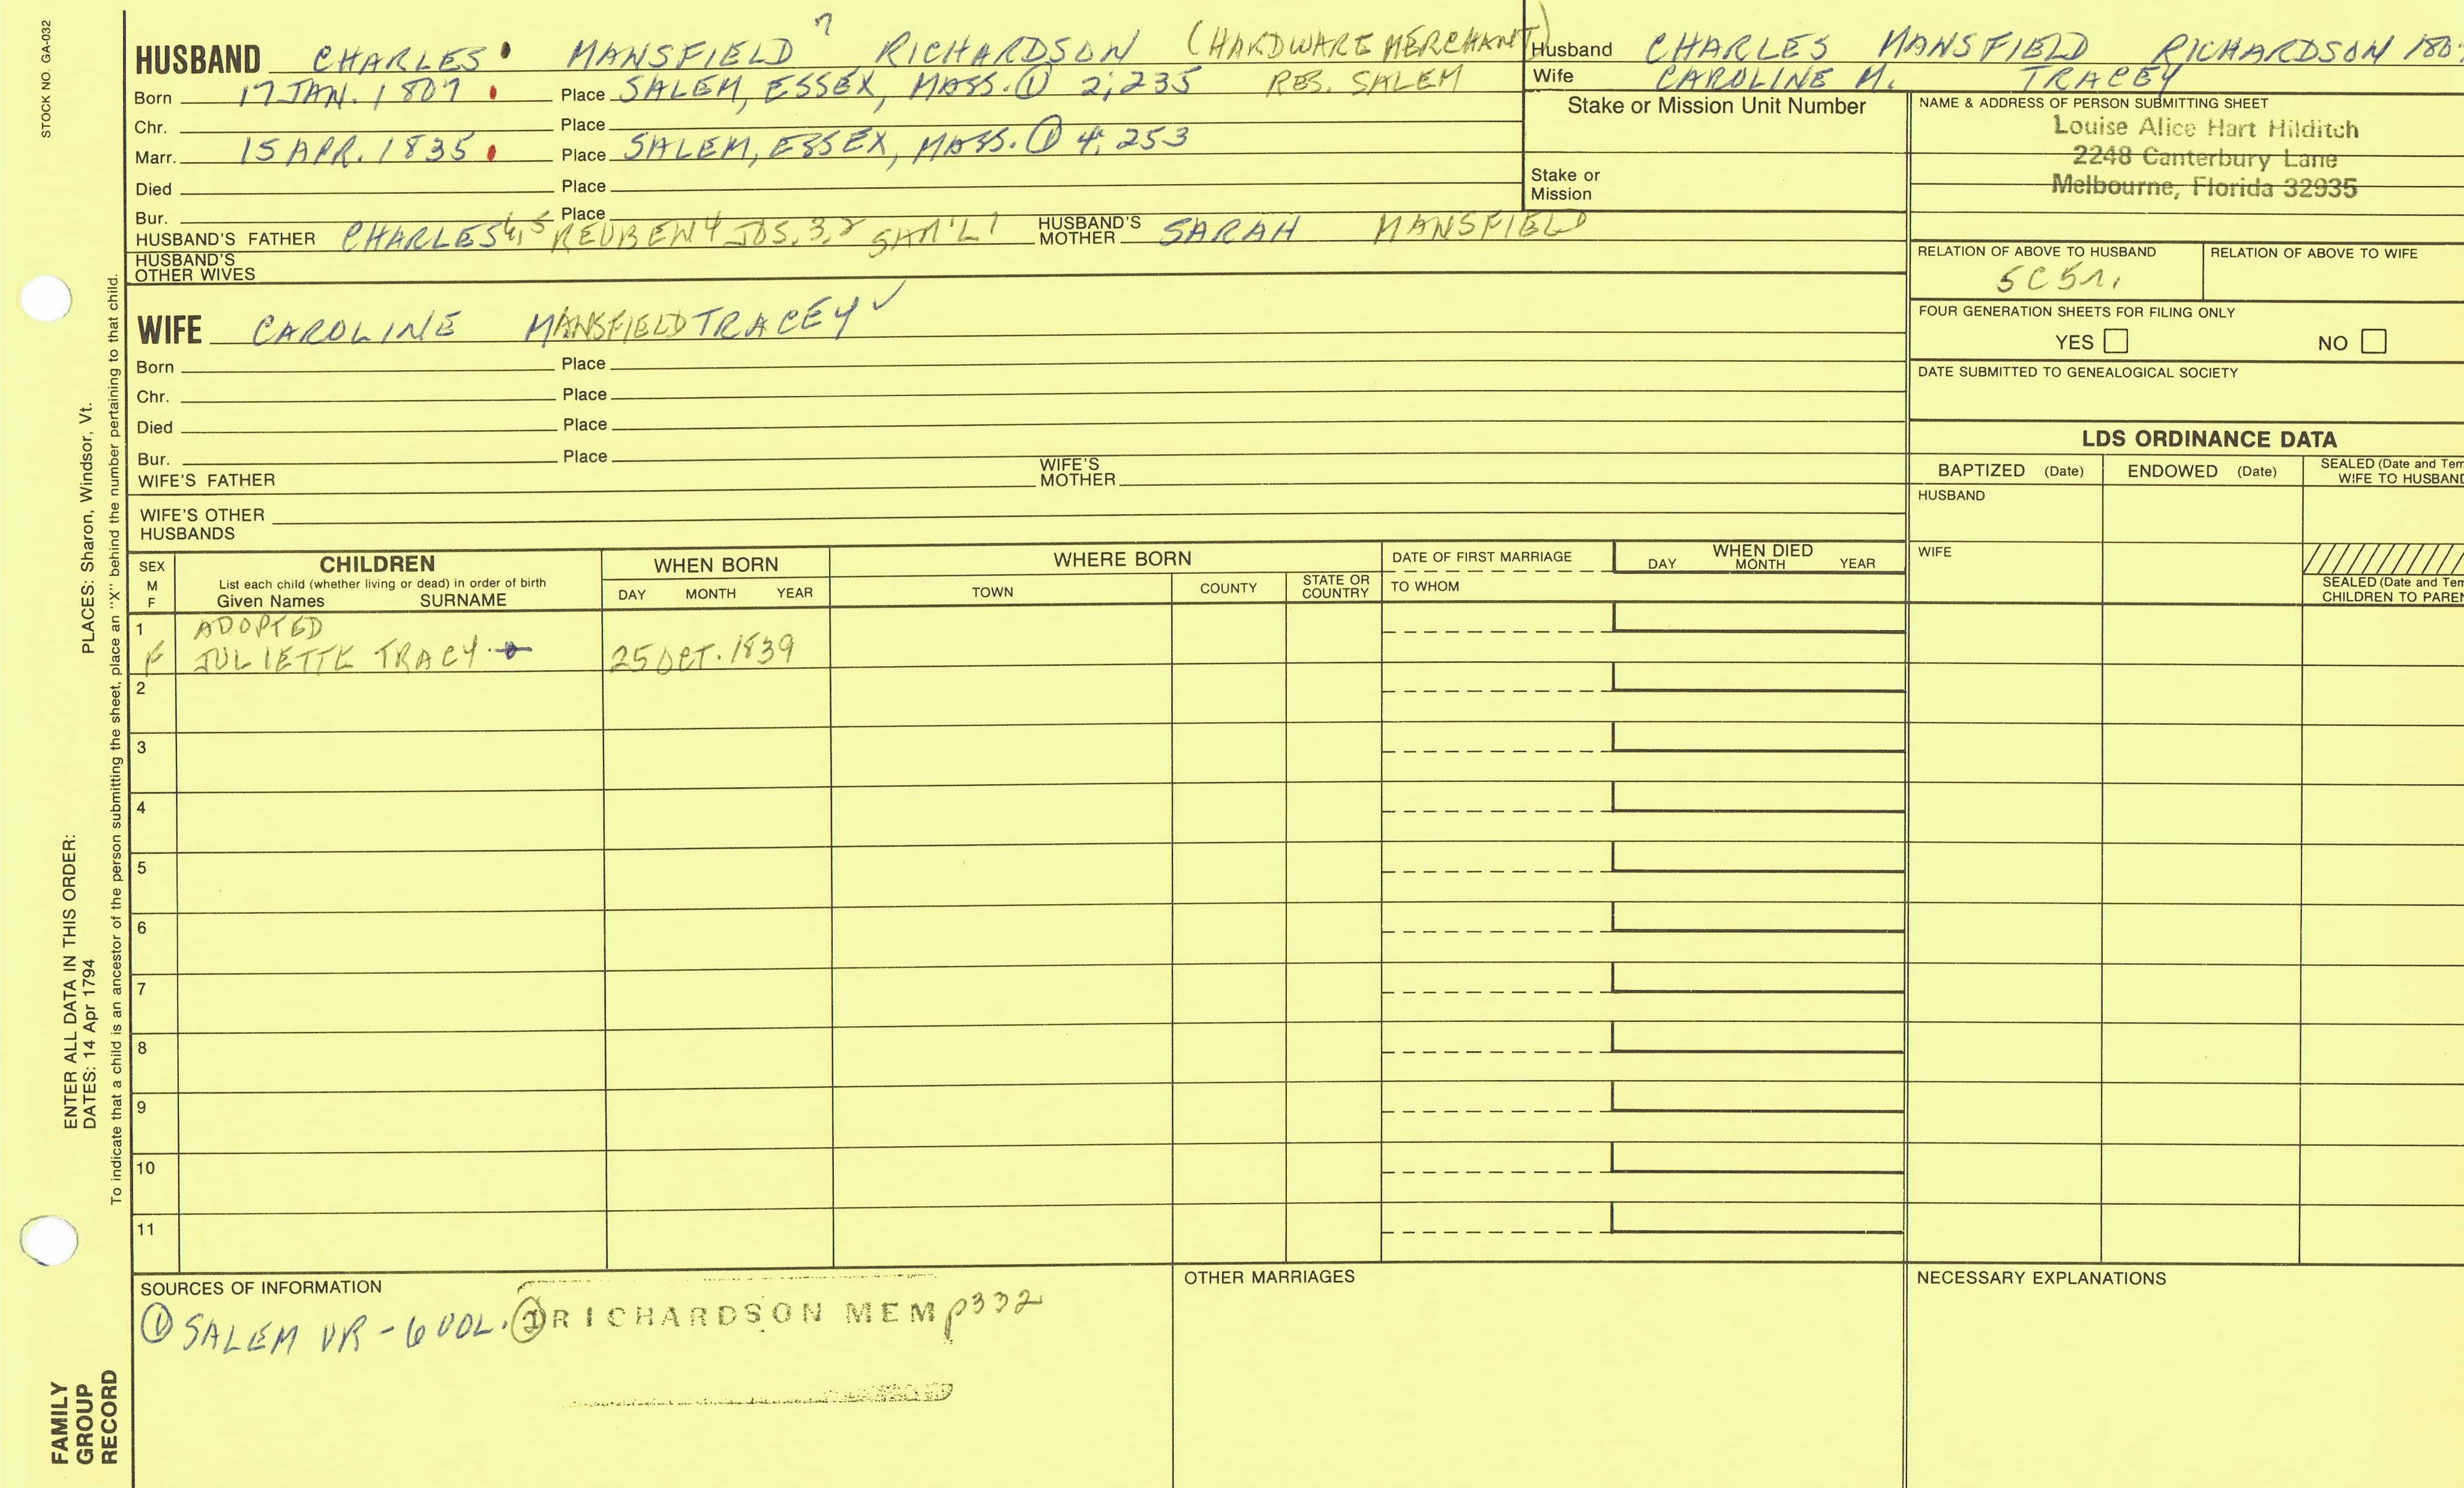 STOCK NO. GA-032
HUSBAND CHARLES MANSFIELD 7 RICHARDSON (HARDWARE MERCHANT)
Born 17 JAN. 1807 Place SALEM, ESSEX, MASS. ① 2;235 RES. SALEM
Chr. Place
Marr. 15 APR. 1835 Place SALEM, ESSEX, MASS. ① 4;253
Died Place
Bur. Place
HUSBAND'S FATHER CHARLES 6,5 REUBEN 4 JOS. 3,2 SAM'L 1 HUSBAND'S MOTHER SARAH MANSFIELD
HUSBAND'S OTHER WIVES
WIFE CAROLINE MANSFIELD TRACEY ✓
Born Place
Chr. Place
Died Place
Bur. Place
WIFE'S FATHER WIFE'S MOTHER
WIFE'S OTHER HUSBANDS
Husband CHARLES MANSFIELD RICHARDSON 180
Wife CAROLINE M. TRACEY
Stake or Mission Unit Number
Stake or Mission
NAME & ADDRESS OF PERSON SUBMITTING SHEET
Louise Alice Hart Hilditch
2248 Canterbury Lane
Melbourne, Florida 32935
RELATION OF ABOVE TO HUSBAND RELATION OF ABOVE TO WIFE
5C5r.
FOUR GENERATION SHEETS FOR FILING ONLY
YES NO
DATE SUBMITTED TO GENEALOGICAL SOCIETY
LDS ORDINANCE DATA
BAPTIZED (Date) ENDOWED (Date) SEALED (Date and Tem
WIFE TO HUSBAND
HUSBAND
WIFE
SEALED (Date and Tem
CHILDREN TO PAREN
SEX M F CHILDREN WHEN BORN WHERE BORN DATE OF FIRST MARRIAGE WHEN DIED
List each child (whether living or dead) in order of birth
Given Names SURNAME DAY MONTH YEAR TOWN COUNTY STATE OR COUNTRY TO WHOM DAY MONTH YEAR
1 ADOPTED
F JULIETTE TRACY 25 OCT. 1839
2
3
4
5
6
7
8
9
10
11
SOURCES OF INFORMATION
① SALEM VR - 6 VOL. ② RICHARDSON MEM p332
OTHER MARRIAGES
NECESSARY EXPLANATIONS
PLACES: Sharon, Windsor, Vt.
ENTER ALL DATA IN THIS ORDER:
DATES: 14 Apr 1794
To indicate that a child is an ancestor of the person submitting the sheet, place an "X" behind the number pertaining to that child.
FAMILY
GROUP
RECORD